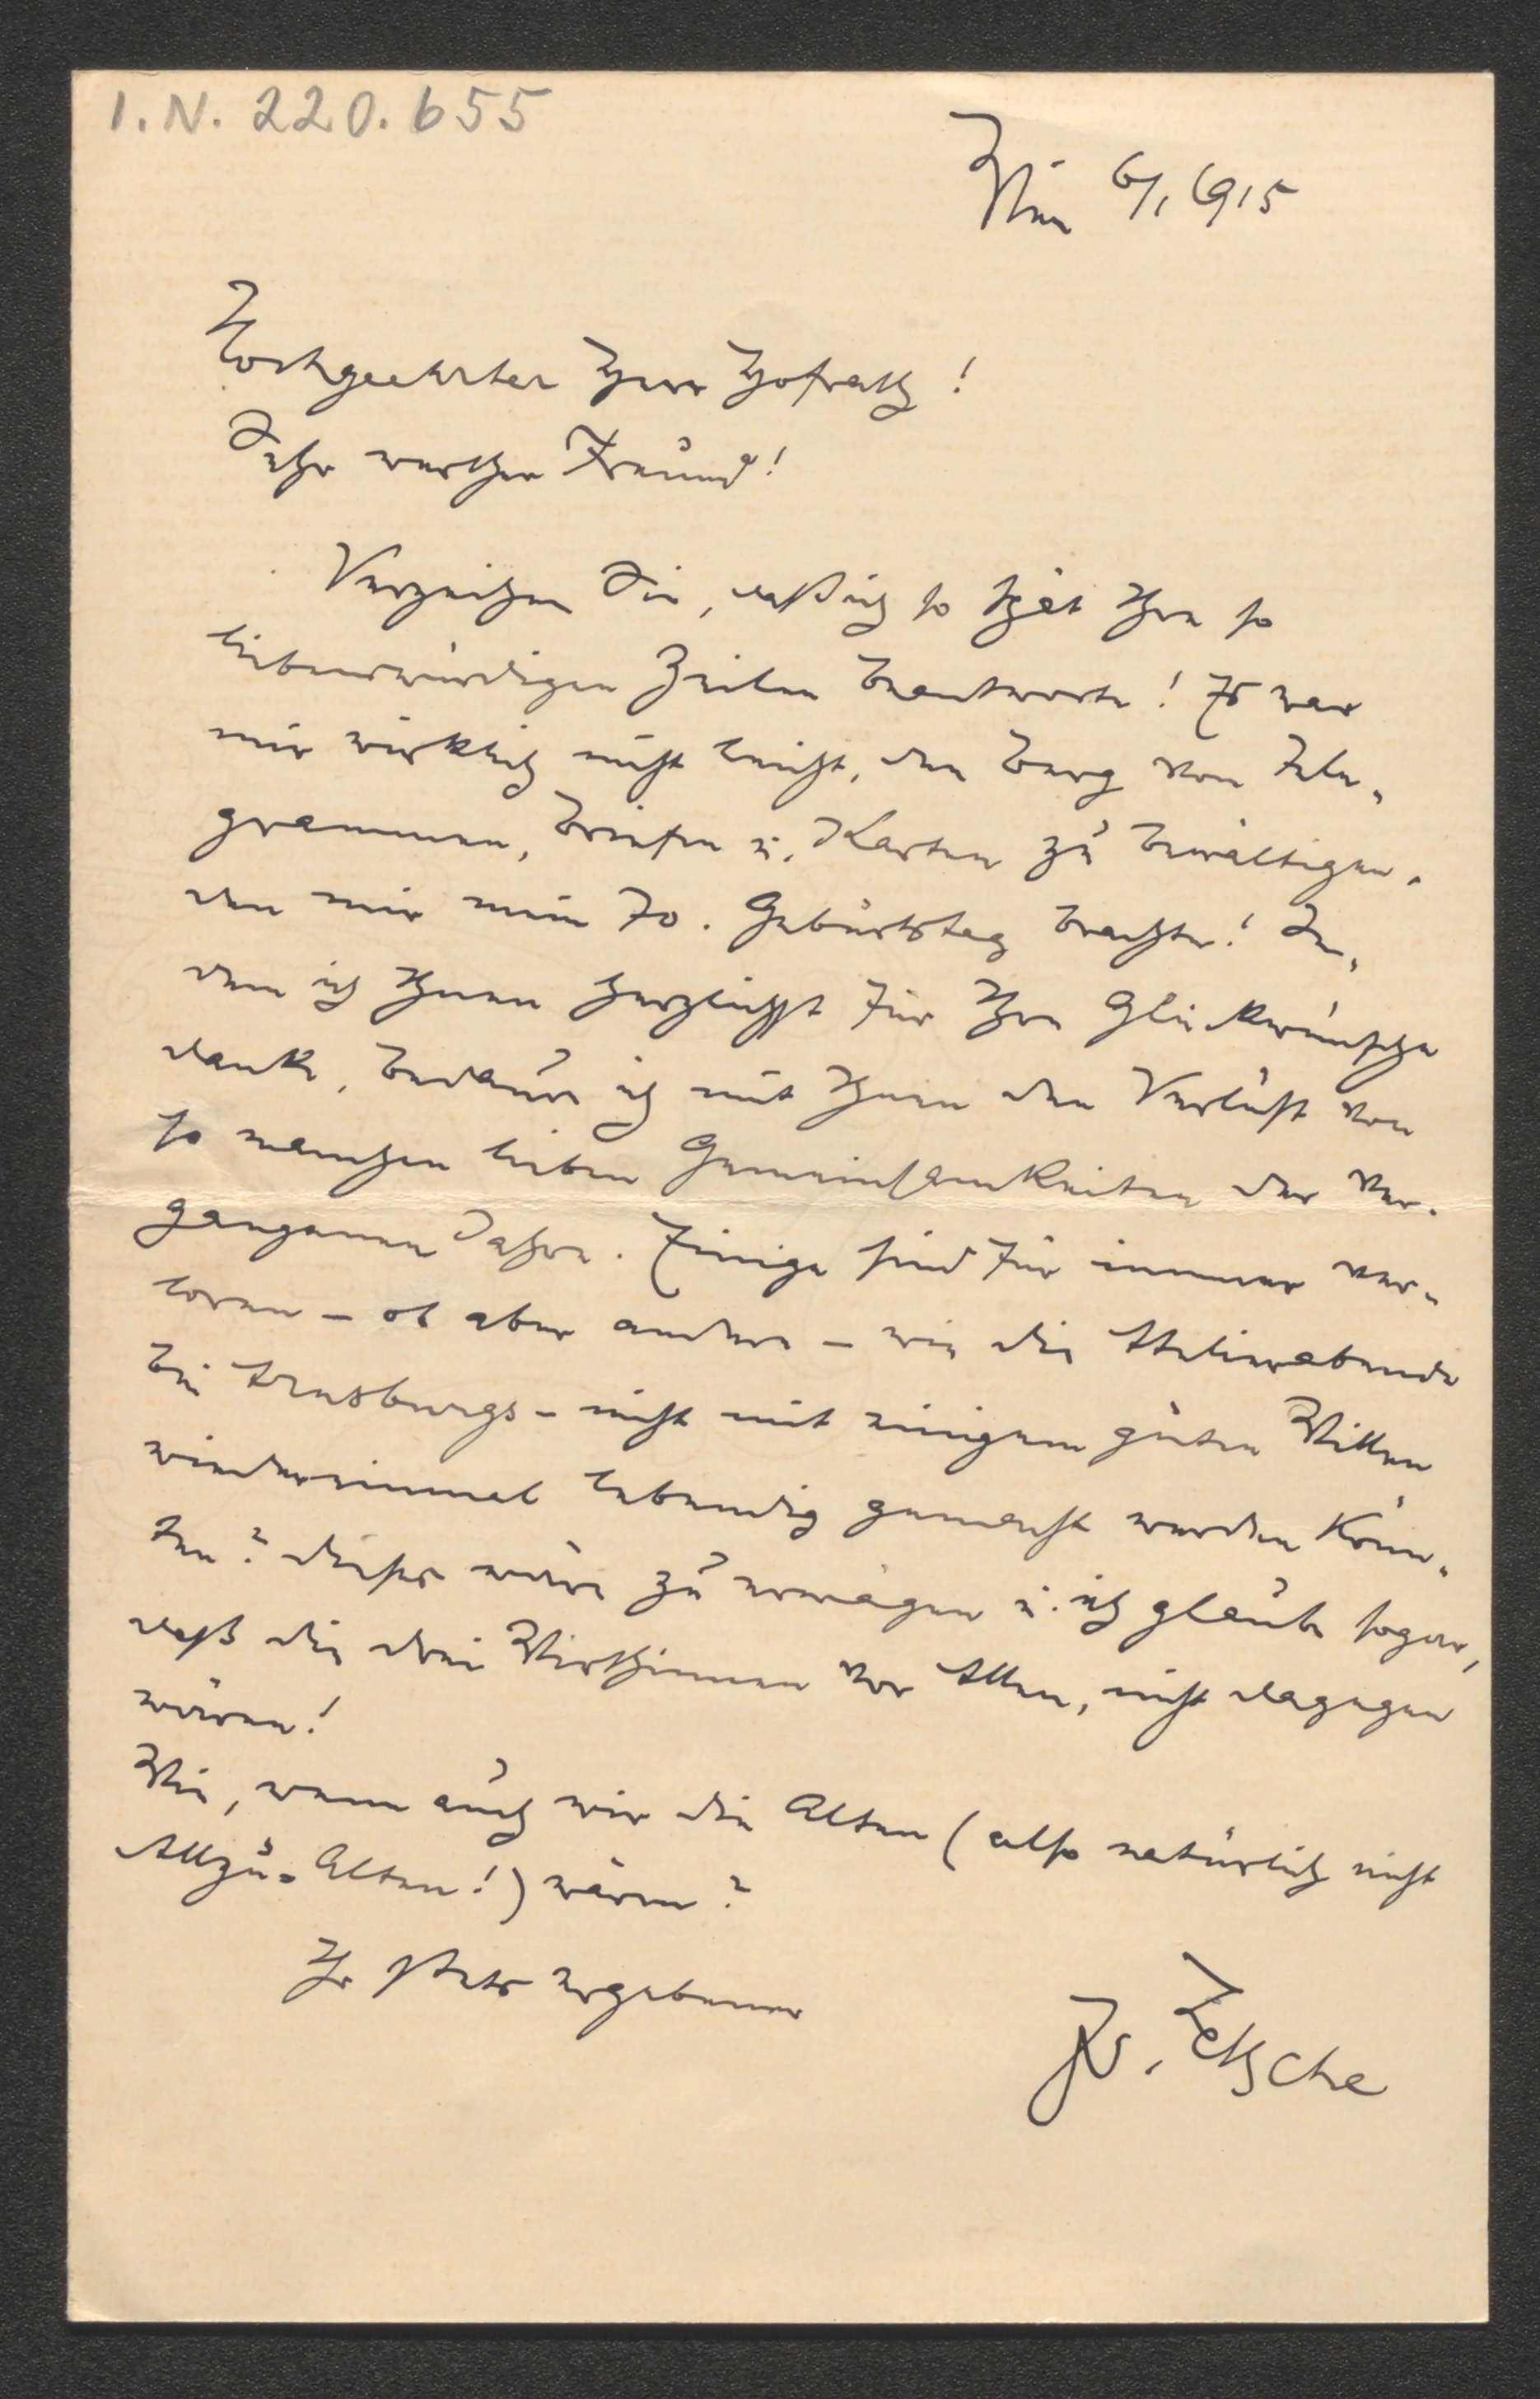 I.N. 220.655
Wien 6/1 1915
Hochgeehrter Herr Hofrath!
Sehr werther Freund!
Verzeihen Sie, daß ich so spät Ihre so
liebenswürdigen Zeilen beantworte! Es war
mir wirklich nicht leicht, den Berg von Tele-
grammen, Briefen u. Karten zu bewältigen,
den mir mein 70. Geburtstag brachte! In-
dem ich Ihnen herzlichst für Ihre Glückwünsche
danke, bedaure ich mit Ihnen den Verlust von
so manchen lieben Gemeinsamkeiten der ver-
gangenen Jahre. Einige sind für immer ver-
loren – ob aber andere – wie die Atelierabende
bei Arnsburgs – nicht mit einigem guten Willen
wiedereinmal lebendig gemacht werden könn-
ten? dieses wäre zu erwägen u. ich glaube sogar,
daß die drei Wirthinnen vor Allen, nicht dagegen
wären!
Wie, wenn auch wir die Alten (also natürlich nicht
Allzu-Alten!) wären?
Ihr stets ergebener
Ed. Zetsche